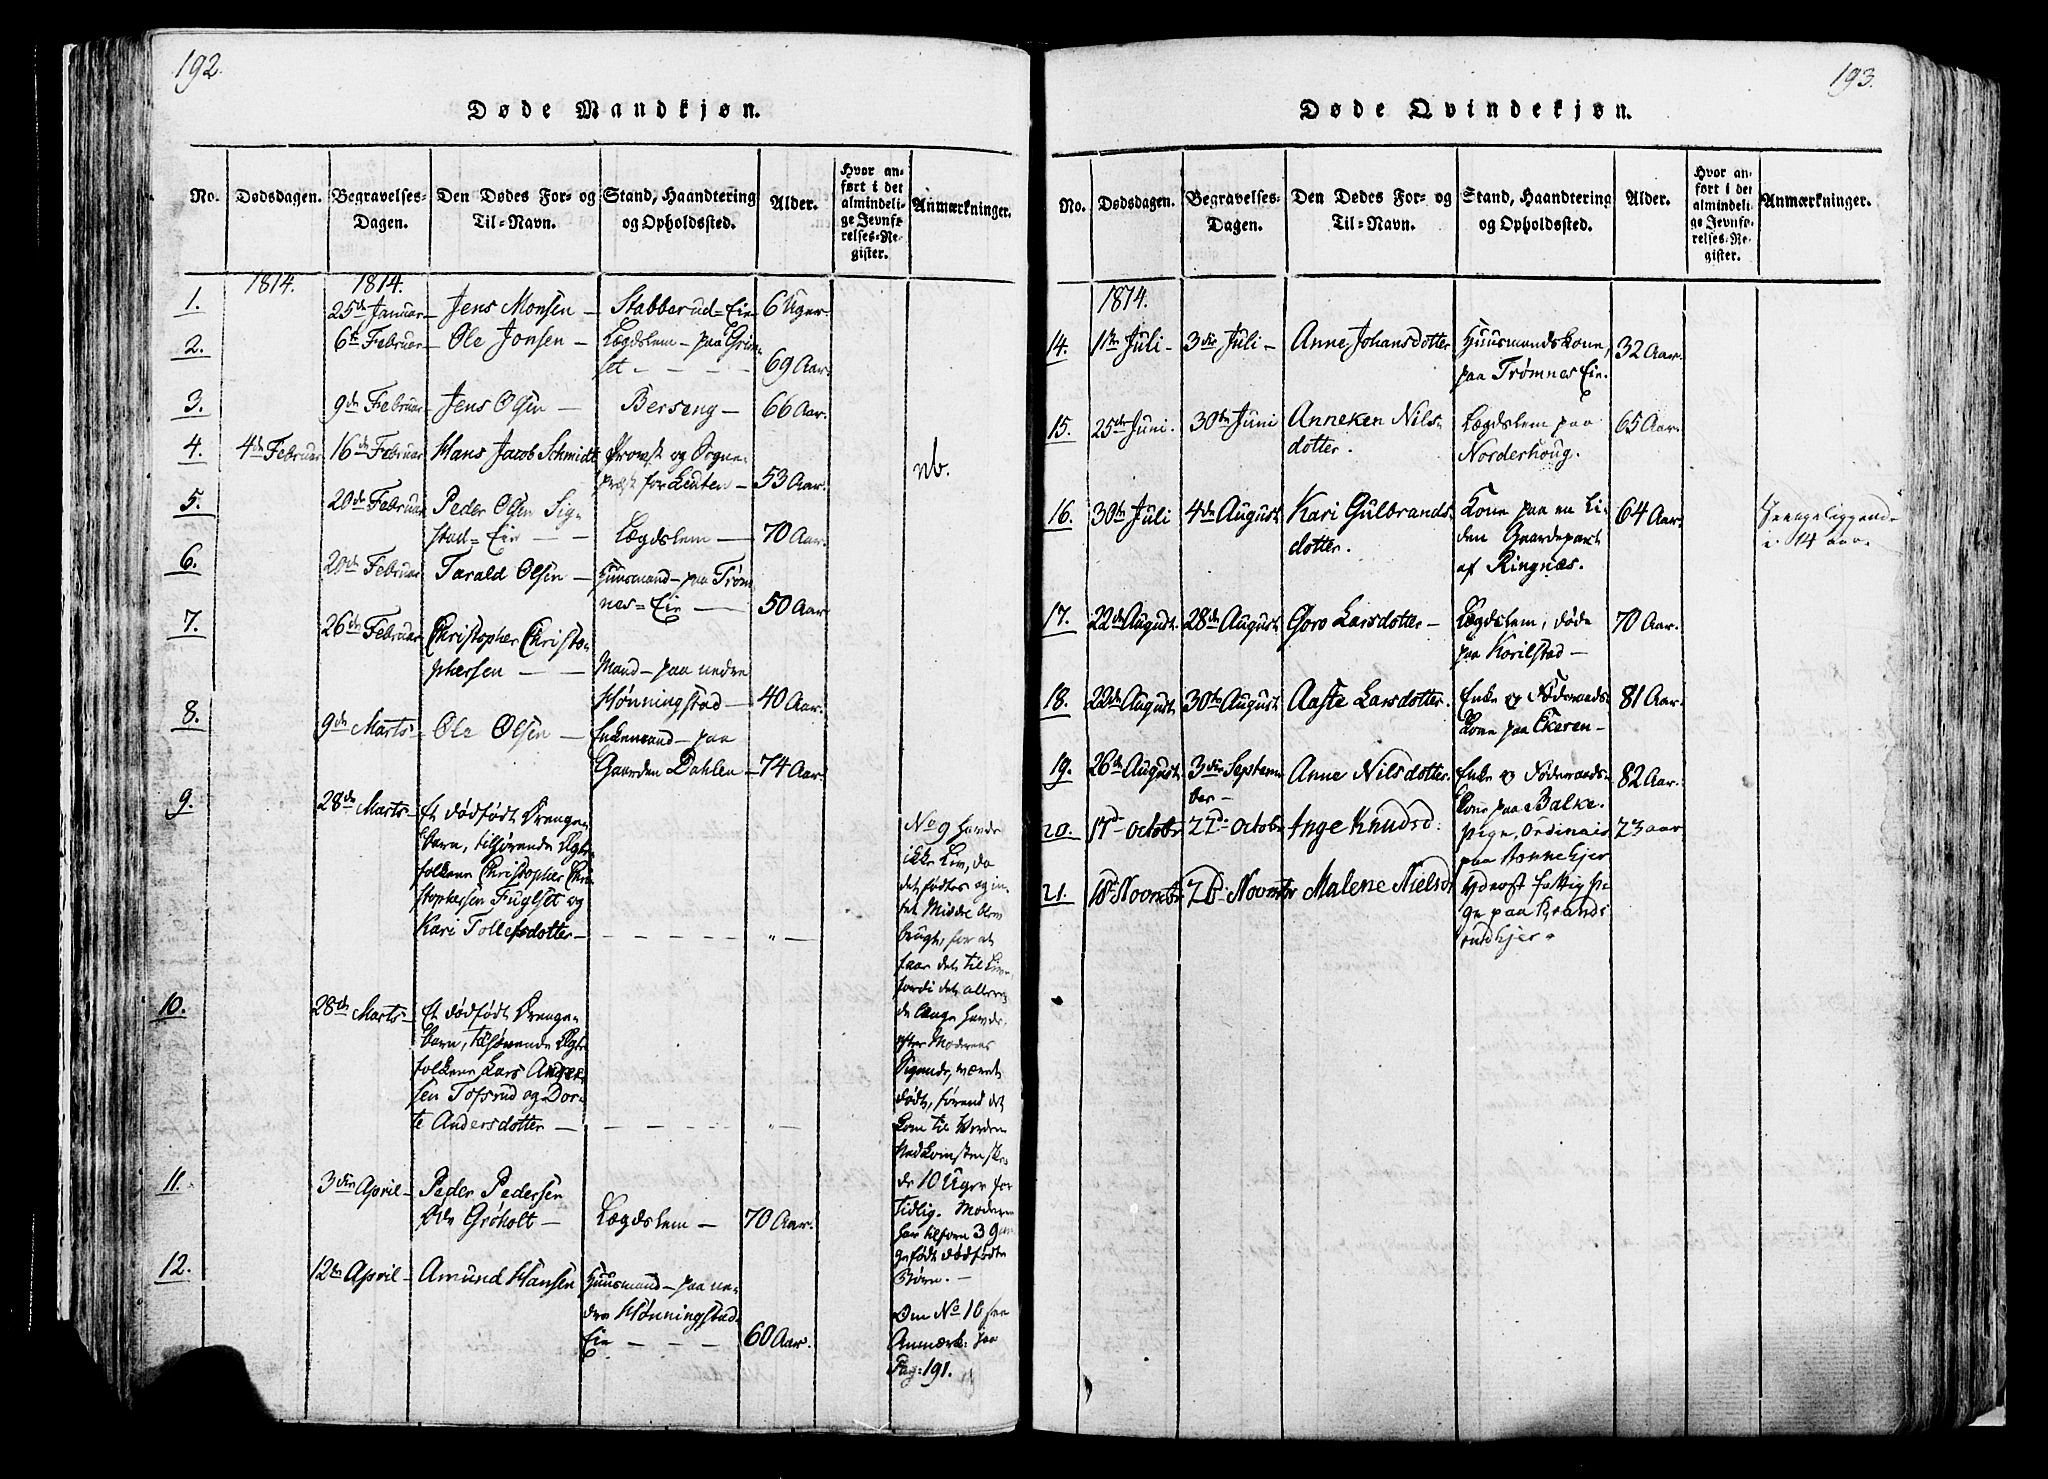 192.
Døde Mandkjøn.
No.
Dødsdagen.
Begravelses-
Dagen.
Den Dødes For- og
Til-Navn.
Stand, Haandtering
og Opholdssted.
Alder.
Hvor an-
ført i det
almindeli-
ge Jevnfø-
relses-Re-
gister.
Anmærkninger.
1814.
1814.
1.
25de Januar
Jens Monsen
Stabberud-Eie
6 Uger.
2.
6te Februar
Ole Jonsen
Lægdslem paa Grim-
set
69 Aar.
3.
9de Februar
Jens Olsen
Berseng
66 Aar.
4.
4de Februar
16de Februar
Hans Jacob Schmidt
Provst og Sogne-
præst for Leuten
53 Aar.
nb.
5.
20de Februar
Peder Olsen Sig-
stad-Eie
Lægdslem
70 Aar.
6.
20de Februar
Tarald Olsen
Huusmand paa Trøm-
nes-Eie
50 Aar
7.
26de Februar
Christopher Christo-
phersen
Mand paa nedre
Hønningstad
40 Aar.
8.
9de Marts
Ole Olsen
Enkemand paa
Gaarden Dahlen
74 Aar.
9.
28de Marts
Et dødfødt Drenge-
barn, tilhørende Ægte-
folkene Christopher Chri-
stophersen Fuglset og
Kari Tollefsdotter
No 9 havde
ikke Liv, da
det fødtes og in-
tet Middel blev
brugt, for at
faae det til Live
fordi det allere-
de længe havde,
efter Moderens
Sigende, været
dødt, førend det
kom til Verden
Nedkomsten ske-
de 10 Uger for
tidlig. Moderen
har tilforn 3 Gan-
ge født dødfødte
Børn.
10.
28de Marts
Et dødfødt Drenge-
barn, tilhørende Ægte-
folkene Lars Ander-
sen Tofsrud og Dor-
te Andersdotter
11.
3die April
Peder Pedersen
Grøholt
Lægdslem
70 Aar.
12.
12te April
Amund Hansen
Huusmand paa ne-
dre Hønningstad
Eie
60 Aar.
Om No 10 see
Anmærk: paa
Pag: 191.
193.
Døde Qvindekjøn.
No.
Dødsdagen.
Begravelses-
Dagen.
Den Dødes For- og
Til-Navn.
Stand, Haandtering
og Opholdssted.
Alder.
Hvor an-
ført i det
almindeli-
ge Jevnfø-
relses-Re-
gister.
Anmærkninger.
1814.
14.
1ste Juli
3die Juli
Anne Johansdotter
Huusmandskone,
paa Trømnes Eie.
32 Aar.
15.
25de Juni.
30te Juni
Anneken Nils-
dotter.
Lægdslem paa
Norderhoug.
65 Aar.
16.
30te Juli
4de August.
Kari Gulbrands-
dotter.
Kone paa en Li-
den Gaardepart
af Ringnæs.
64 Aar.
Sengeliggende
i 14 aar.
17.
22de August.
28de August
Goro Larsdotter
Lægdslem, døde
paa Korilstad
70 Aar.
18.
22de August
30te August
Aaste Larsdotter.
Enke og Føderaads-
Kone paa Ekeren
81 Aar.
19.
26de August.
3die Septem-
ber
Anne Nilsdotter.
Enke og Føderaads-
Kone paa Balke.
82 Aar.
20.
17de Octobr
Octobr
Inge Knudsd:
pige,
paa
73 aar
21.
18de Novembr
Novembr
Malene Nielsd
yderst fattig Pi-
ge paa Brands
rud Ejer